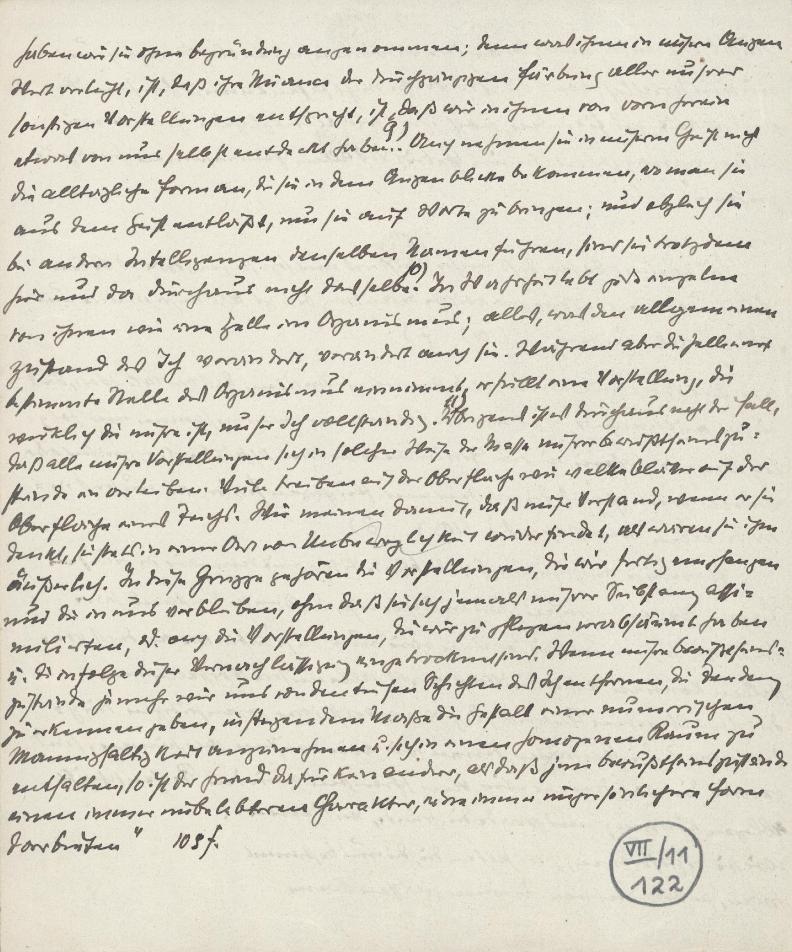 haben wir sie ohne begründung angenommen; denn was ihnen in unsern Augen
Wert verleiht, ist, daß ihre Nuance der durchgängigen färbung aller unsrer
sonstigen Vorstellungen entspricht, ist, daß wir in ihnen von vorn herein
etwas von uns selbst entdeckt haben. 9) Auch nehmen sie in unserm Geist nicht
die alltägliche Form an, die sie in dem Augenblicke bekommen, wo man sie
aus dem Geist entläßt, um sie auf Worte zu bringen; und obgleich sie
bei andern Intelligenzen denselben Namen führen, sind sie trotzdem
hier und da durchaus nicht dasselbe. 10) In Wahrheit lebt jede einzelne
von ihnen wie eine Zelle im Organismus; alles, was den allgemeinen
zustand des Ich verändert, verändert auch sie. Während aber die Zelle eine
bestimmte Stelle des Organismus einnimmt, erfüllt eine Vorstellung, die
wirklich die unsre ist, unser Ich vollständig. 11) Übrigens ist es durchaus nicht der Fall,
daß alle unsre Vorstellungen sich in solcher Weise der Masse unsrer bewußtseinszu-
stände einverleiben. Viele treiben auf der Oberfläche wie welke blätter auf der
Oberfläche eines Teichs. Wir meinen damit, daß unser Verstand, wenn er sie
denkt, sie stets in einer Art von Unbeweglichkeit wiederfindet, als wären sie ihm
äußerlich. In diese Gruppe gehören die Vorstellungen, die wir fertig empfangen
und die in uns verbleiben, ohne daß sie sich jemals unsrer Substanz assi-
milierten, od. auch die Vorstellungen, die wir zu pflegen verabsäumt haben
u. die infolge dieser Vernachlässigung eingetrocknet sind. Wenn unsre bewußtseins-
zustände je mehr wir uns von den tiefen Schichten des Ich entfernen, die Tendenz
zu erkennen geben, in steigendem Maße die Gestalt einer numerischen
Mannigfaltigkeit anzunehmen u. sich in einem homogenen Raum zu
entfalten, so ist der Grund dafür kein andrer, als daß jene bewußtseinszustände
einen immer unbelebteren Charakter, eine immer unpersönlichere form
darbieten" 105 f.
VII/11
122